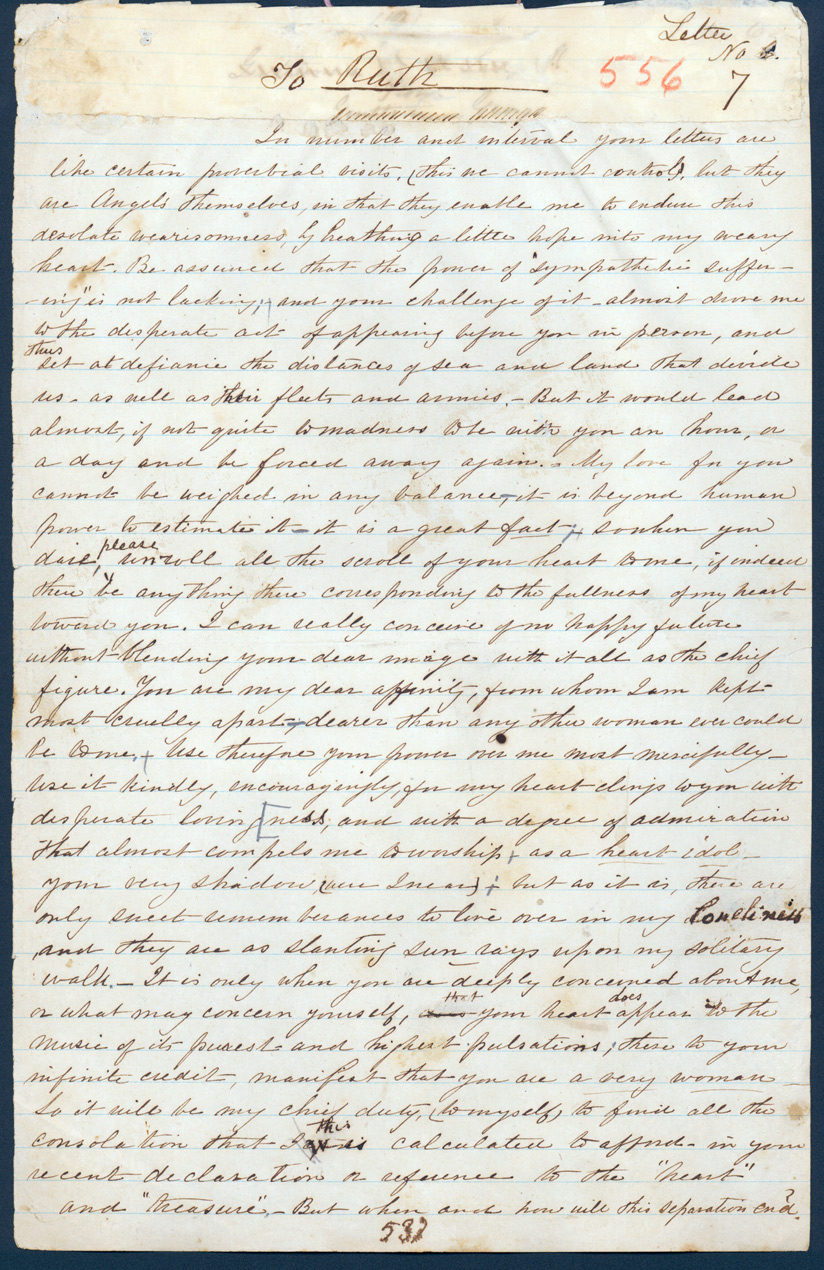 Letter
No
To Ruth
556
7
In number and interval your letters are
like certain proverbial visits, (this we cannot control), but they
are Angels themselves, in that they enable me to endure this
desolate wearisomness, by breathing a little hope into my weary
heart. Be assured that the power of "sympathetic suffer-
-ing" is not lacking; and your challenge of it - almost drove me
to the desperate act of appearing before you in person, and
thus
set at defiance the distances of sea and land that divide
us - as well as their fleets and armies. - But it would lead
almost, if not quite to madness to be with you an hour, or
a day and be forced away again. - My love for you
cannot be weighed in any balance, - it is beyond human
power to estimate it - it is a great fact; so when you
please
dare, unroll all the scroll of your heart to me, if indeed
there be anything there corresponding to the fullness of my heart
toward you. I can really conceive of no happy future
without blending your dear image with it all as the chief
figure. You are my dear affinity, from whom I am kept
most cruelly apart - dearer than any other woman ever could
be to me. + Use therefore your power over me most mercifully -
use it kindly, encouragingly, for my heart clings to you with
desperate loving[ness, and with a degree of admiration
that almost compels me to worship + as a heart idol -
your very shadow (were I near) + but as it is, there are
only sweet remembrances to live over in my loneliness
and they are as slanting sun rays upon my solitary
walk. - It is only when you are deeply concerned about me,
that does
or what may concern yourself, your heart appear to the
music of its purest and highest pulsations; these to your
infinite credit, manifest that you are a very woman -
So it will be my chief duty, (to myself) to find all the
this
consolation that is calculated to afford - in your
recent declaration or reference to the "heart"
and "treasure". - But when and how will this separation end?
532